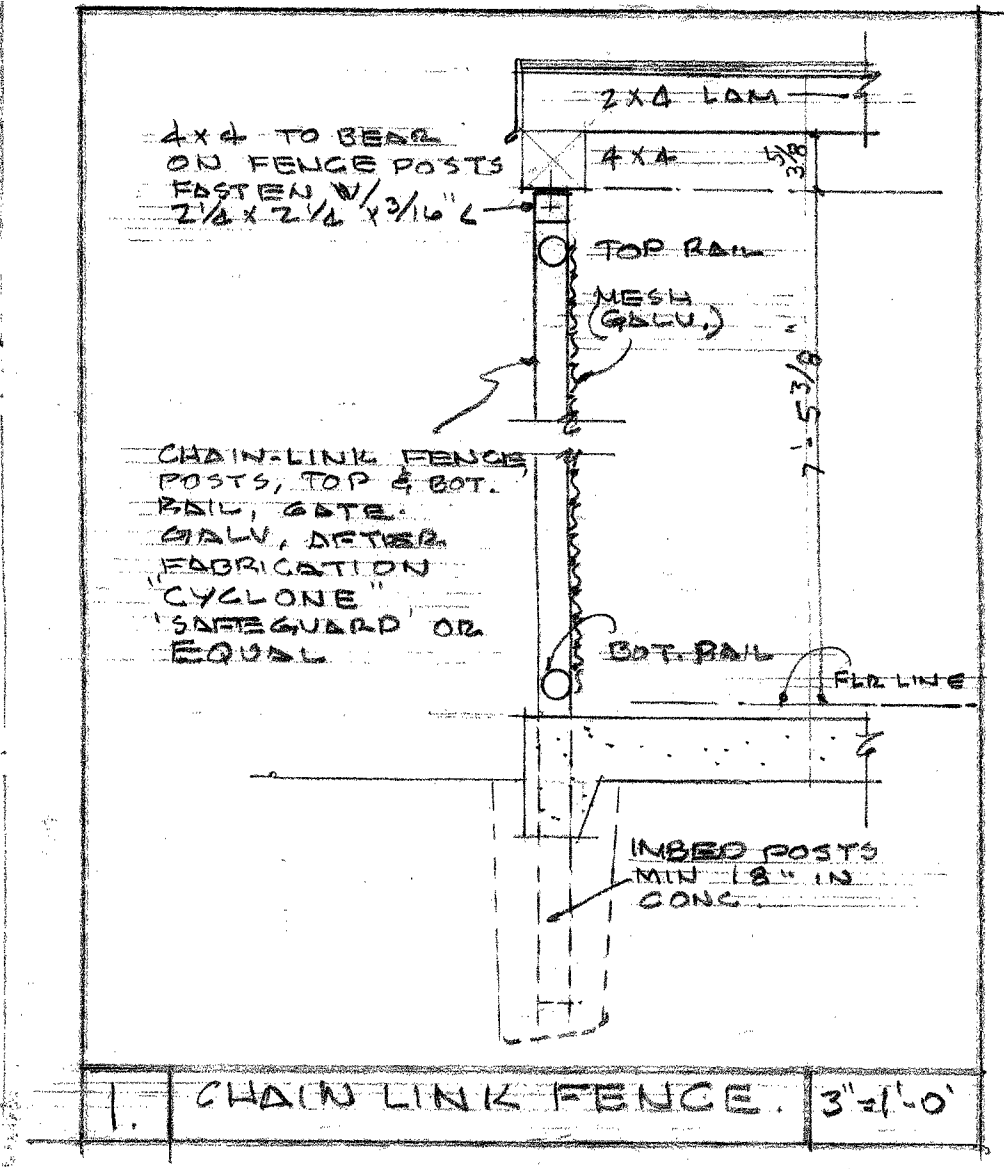 2 X 4 LAM
4 X 4 TO BEAR
ON FENCE POSTS
FASTEN W/
2 1/4 X 2 1/4 X 3/16" L
4 X 4
TOP RAIL
MESH
(GALV.)
7'-5 3/8"
CHAIN-LINK FENCE
POSTS, TOP & BOT.
RAIL, GATE.
GALV. AFTER
FABRICATION
"CYCLONE"
'SAFEGUARD' OR
EQUAL
BOT. RAIL
FLR LINE
IMBED POSTS
MIN 18" IN
CONC.
1. CHAIN LINK FENCE. 3"=1'-0"